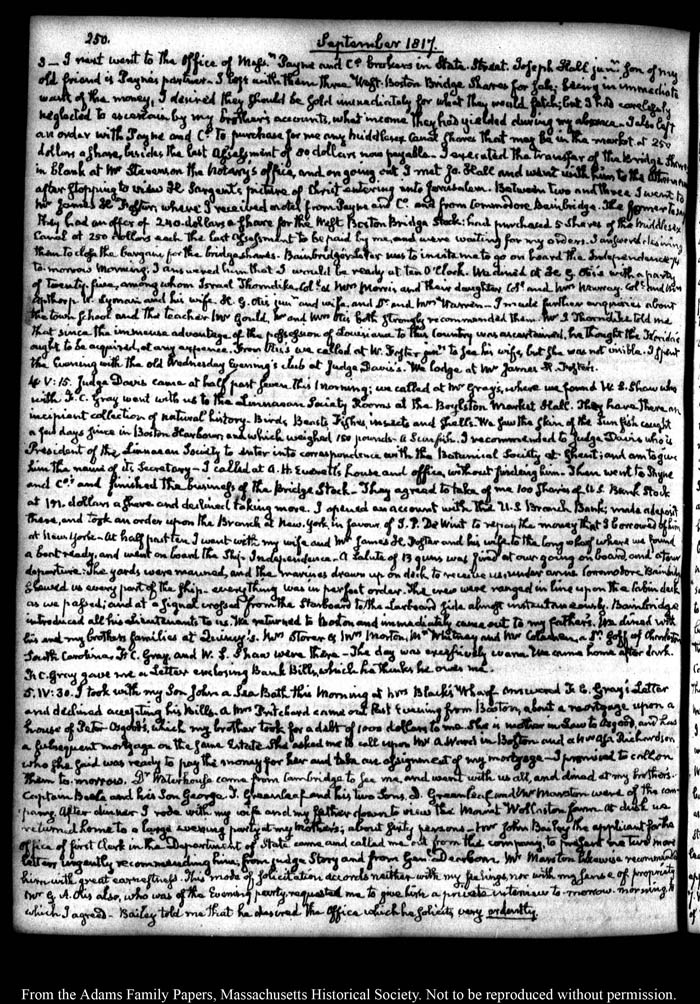 250.
September 1817.
3 — I next went to the Office of Mess.rs Payne and C.o brokers in State Street. Joseph Hall jun.r son of my
old friend is Payne's partner. I left with them three West Boston Bridge Shares for sale; being in immediate
want of the money, I desired they should be sold immediately for what they would fetch; but I had carelessly
neglected to ascertain by my brother's accounts, what income they had yielded during my absence. I also left
an order with Payne and C.o to purchase for me any Middlesex Canal Shares that may be in the market at 250
dollars a share, besides the last Assessment of 80 dollars now payable. I executed the transfer of the Bridge Shares
in blank at Mr Stevenson the Notary's office, and on going out I met Jo. Hall and went with him to the
after stopping to view H. Sargent's picture of Christ entering into Jerusalem. Between two and three I went to
Mr James H. Foster's where I received a note from Payne and C.o and from Commodore Bainbridge. The former to say
they had an offer of 240 dollars a share for the West Boston Bridge Stock: had purchased 5 Shares of the Middlesex
Canal at 250 dollars each the last assessment to be paid by me, and were waiting for my orders. I answered desiring
them to close the bargain for the bridge shares. Bainbridge's letter was to invite me to go on board the Independence 74
to-morrow Morning; I answered him that I would be ready at ten O'Clock. We dined at H. G. Otis's with a party
of twenty five, among whom Israel Thorndike, Col.l and Mrs Morris, and their daughter, Col.l and Mrs Murray, Col.l and Mrs
Apthorp W. Lyman and his wife, H. G. Otis jun.r and wife, and Dr and Mrs Warren. I made further enquiries about
the town school and the teacher Mr Gould, Mr and Mrs Otis both strongly recommended them. Mr I. Thorndike told me
that since the immense advantage of the possession of Louisiana to this country was ascertained, he thought the Floridas
ought to be acquired, at any expence. From Otis's we called at W. Foster jun.rs to see his wife, but she was not visible. I spent
the Evening with the old Wednesday Evening's club at Judge Davis's. We lodge at Mr James H. Foster's.
4. V:15. Judge Davis came at half past seven this morning; we called at Mr Gray's, where we found W. S. Shaw who
with F. C. Gray went with us to the Linnaean Society Rooms at the Boylston Market Hall. They have there an
incipient collection of natural history. Birds, Beasts, Fishes, insects and shells. We saw the skin of the Sun fish caught
a few days since in Boston Harbour, and which weighed 180 pounds. I recommended to Judge Davis who is
President of the Linnaean Society to enter into correspondence with the Botanical Society at Ghent; and am to give
him the name of its Secretary. I called at A. H. Everett's house and office, without finding him. Then went to Payne
and C.o's and finished the business of the Bridge Stock. They agreed to take of me 100 Shares of U.S. Bank Stock
at dollars a share and declined taking more. I opened an account with the U.S. Branch Bank; made a deposit
there, and took an order upon the Branch at New-York in favour of J. P. De Wint to repay the money that I borrowed of him
at New York. At half past ten I went with my wife and Mr James H. Foster and his wife to the long wharf where we found
a boat ready, and went on board the Ship Independence. A Salute of 13 guns was fired at our going on board and at our
departure. The yards were manned, and the marines drawn up on deck to receive us under arms. Commodore Bainbridge
shewed us every part of the Ship. every thing was in perfect order. The crew were ranged in line upon the deck
as we passed; and at a signal crossed from the starboard to the larboard side almost instantaneously. Bainbridge
introduced all his Lieutenants to us. We returned to Boston and immediately came out to my father's. We dined with
his and my brother's families at Quincy's. Mrs Storer & Mrs Morton, Mr Whitney and Mr Colman, a Dr Goff of Charleston
South Carolina, F. C. Gray, and W. S. Shaw were there. The day was excessively warm. We came home after dark.
F. C. Gray gave me a Letter enclosing Bank Bills, which he thinks he owes me.
5. IV:30. I took with my Son John a Sea Bath this Morning at Mrs Black's Wharf. Answered F. C. Gray's Letter
and declined accepting his Bills. A Mrs Pritchard came out last Evening from Boston, about a mortgage upon a
house of Peter Osgood's, which my brother took for a debt of 1000 dollars to me. She is mother in law to Osgood, and has
a subsequent mortgage on the same Estate. She asked me to call upon Mr A. Ward in Boston and a Mr Asa Richardson
who she said was ready to pay the money for her and take an assignment of my mortgage. I promised to call on
them to-morrow. Dr Waterhouse came from Cambridge to see me, and went with us all, and dined at my brother's.
Captain Beale and his Son George, J. Greenleaf and his two Sons, D. Greenleaf and Mr Marston were of the com-
pany. After dinner I rode with my wife and my father down to view the Mount Wollaston farm. At dusk we
returned home to a large evening party at my mother's; about sixty persons. Mr John Bailey the applicant for the
office of first Clerk in the Department of State came and called me out from the company, to present me two more
letters urgently recommending him; from judge Story and from Gen.l Dearborn. Mr Marston likewise recommends
him with great earnestness. This mode of solicitation accords neither with my feelings, nor with my sense of propriety.
Mr G. A. Otis also, who was of the Evening party, requested me to give him a private interview to-morrow morning, to
which I agreed. Bailey told me that he desired the Office which he solicits, very ardently.
From the Adams Family Papers, Massachusetts Historical Society. Not to be reproduced without permission.